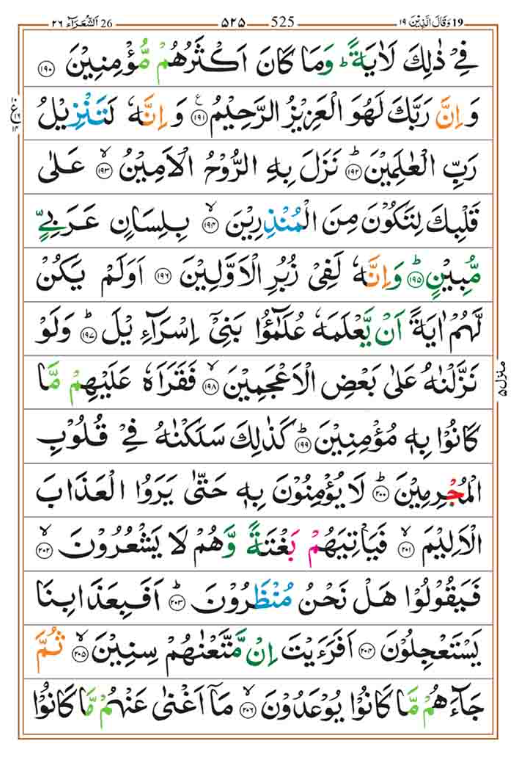 19 وَقَالَ الَّذِيْنَ ١٩ 525 ۵۲۵ 26 اَلشُّعَرَآء ٢٦
فِىْ ذٰلِكَ لَاٰيَةً ؕ وَمَا كَانَ اَكْثَرُهُمْ مُّؤْمِنِيْنَ ﴿۱۹۰﴾
وَ اِنَّ رَبَّكَ لَهُوَ الْعَزِيْزُ الرَّحِيْمُ ﴿۱۹۱﴾ ع وَ اِنَّهٗ لَتَنْزِيْلُ
رَبِّ الْعٰلَمِيْنَ ؕ ﴿۱۹۲﴾ نَزَلَ بِهِ الرُّوْحُ الْاَمِيْنُ ۙ ﴿۱۹۳﴾ عَلٰى
قَلْبِكَ لِتَكُوْنَ مِنَ الْمُنْذِرِيْنَ ۙ ﴿۱۹۴﴾ بِلِسَانٍ عَرَبِىٍّ
مُّبِيْنٍ ؕ ﴿۱۹۵﴾ وَاِنَّهٗ لَفِىْ زُبُرِ الْاَوَّلِيْنَ ﴿۱۹۶﴾ اَوَلَمْ يَكُنْ
لَّهُمْ اٰيَةً اَنْ يَّعْلَمَهٗ عُلَمٰٓؤُا بَنِىْۤ اِسْرَآءِيْلَ ؕ ﴿۱۹۷﴾ وَلَوْ
نَزَّلْنٰهُ عَلٰى بَعْضِ الْاَعْجَمِيْنَ ۙ ﴿۱۹۸﴾ فَقَرَاَهٗ عَلَيْهِمْ مَّا
كَانُوْا بِهٖ مُؤْمِنِيْنَ ؕ ﴿۱۹۹﴾ كَذٰلِكَ سَلَكْنٰهُ فِىْ قُلُوْبِ
الْمُجْرِمِيْنَ ؕ ﴿۲۰۰﴾ لَا يُؤْمِنُوْنَ بِهٖ حَتّٰى يَرَوُا الْعَذَابَ
الْاَلِيْمَ ۙ ﴿۲۰۱﴾ فَيَاْتِيَهُمْ بَغْتَةً وَّهُمْ لَا يَشْعُرُوْنَ ۙ ﴿۲۰۲﴾
فَيَقُوْلُوْا هَلْ نَحْنُ مُنْظَرُوْنَ ؕ ﴿۲۰۳﴾ اَفَبِعَذَابِنَا
يَسْتَعْجِلُوْنَ ﴿۲۰۴﴾ اَفَرَءَيْتَ اِنْ مَّتَّعْنٰهُمْ سِنِيْنَ ۙ ﴿۲۰۵﴾ ثُمَّ
جَآءَهُمْ مَّا كَانُوْا يُوْعَدُوْنَ ۙ ﴿۲۰۶﴾ مَاۤ اَغْنٰى عَنْهُمْ مَّا كَانُوْا
منزل ۵